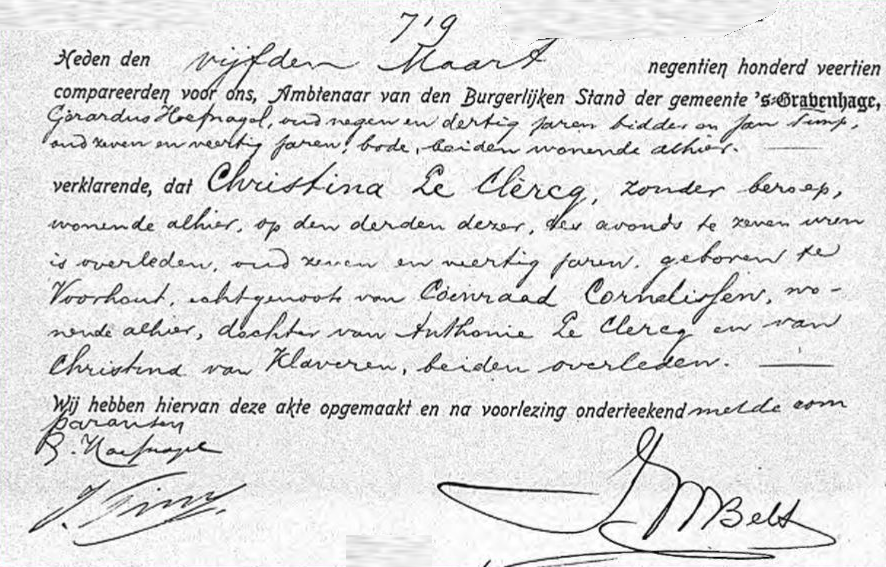 719
Heden den vijfden Maart negentien honderd veertien
compareerden voor ons, Ambtenaar van den Burgerlijken Stand der gemeente 's-Gravenhage,
Gerardus Hoefnagel, oud negen en dertig jaren bidder en Jan Timp,
oud zeven en veertig jaren, bode, beiden wonende alhier.
verklarende, dat Christina Le Clercq, zonder beroep,
wonende alhier, op den derden dezer, des avonds te zeven uren
is overleden, oud zeven en veertig jaren, geboren te
Voorhout, echtgenoote van Coenraad Cornelissen, wo-
nende alhier, dochter van Anthonie Le Clercq en van
Christina van Klaveren, beiden overleden.
Wij hebben hiervan deze akte opgemaakt en na voorlezing onderteekend met de com
paranten
G. Hoefnagel
J. Timp
Belt